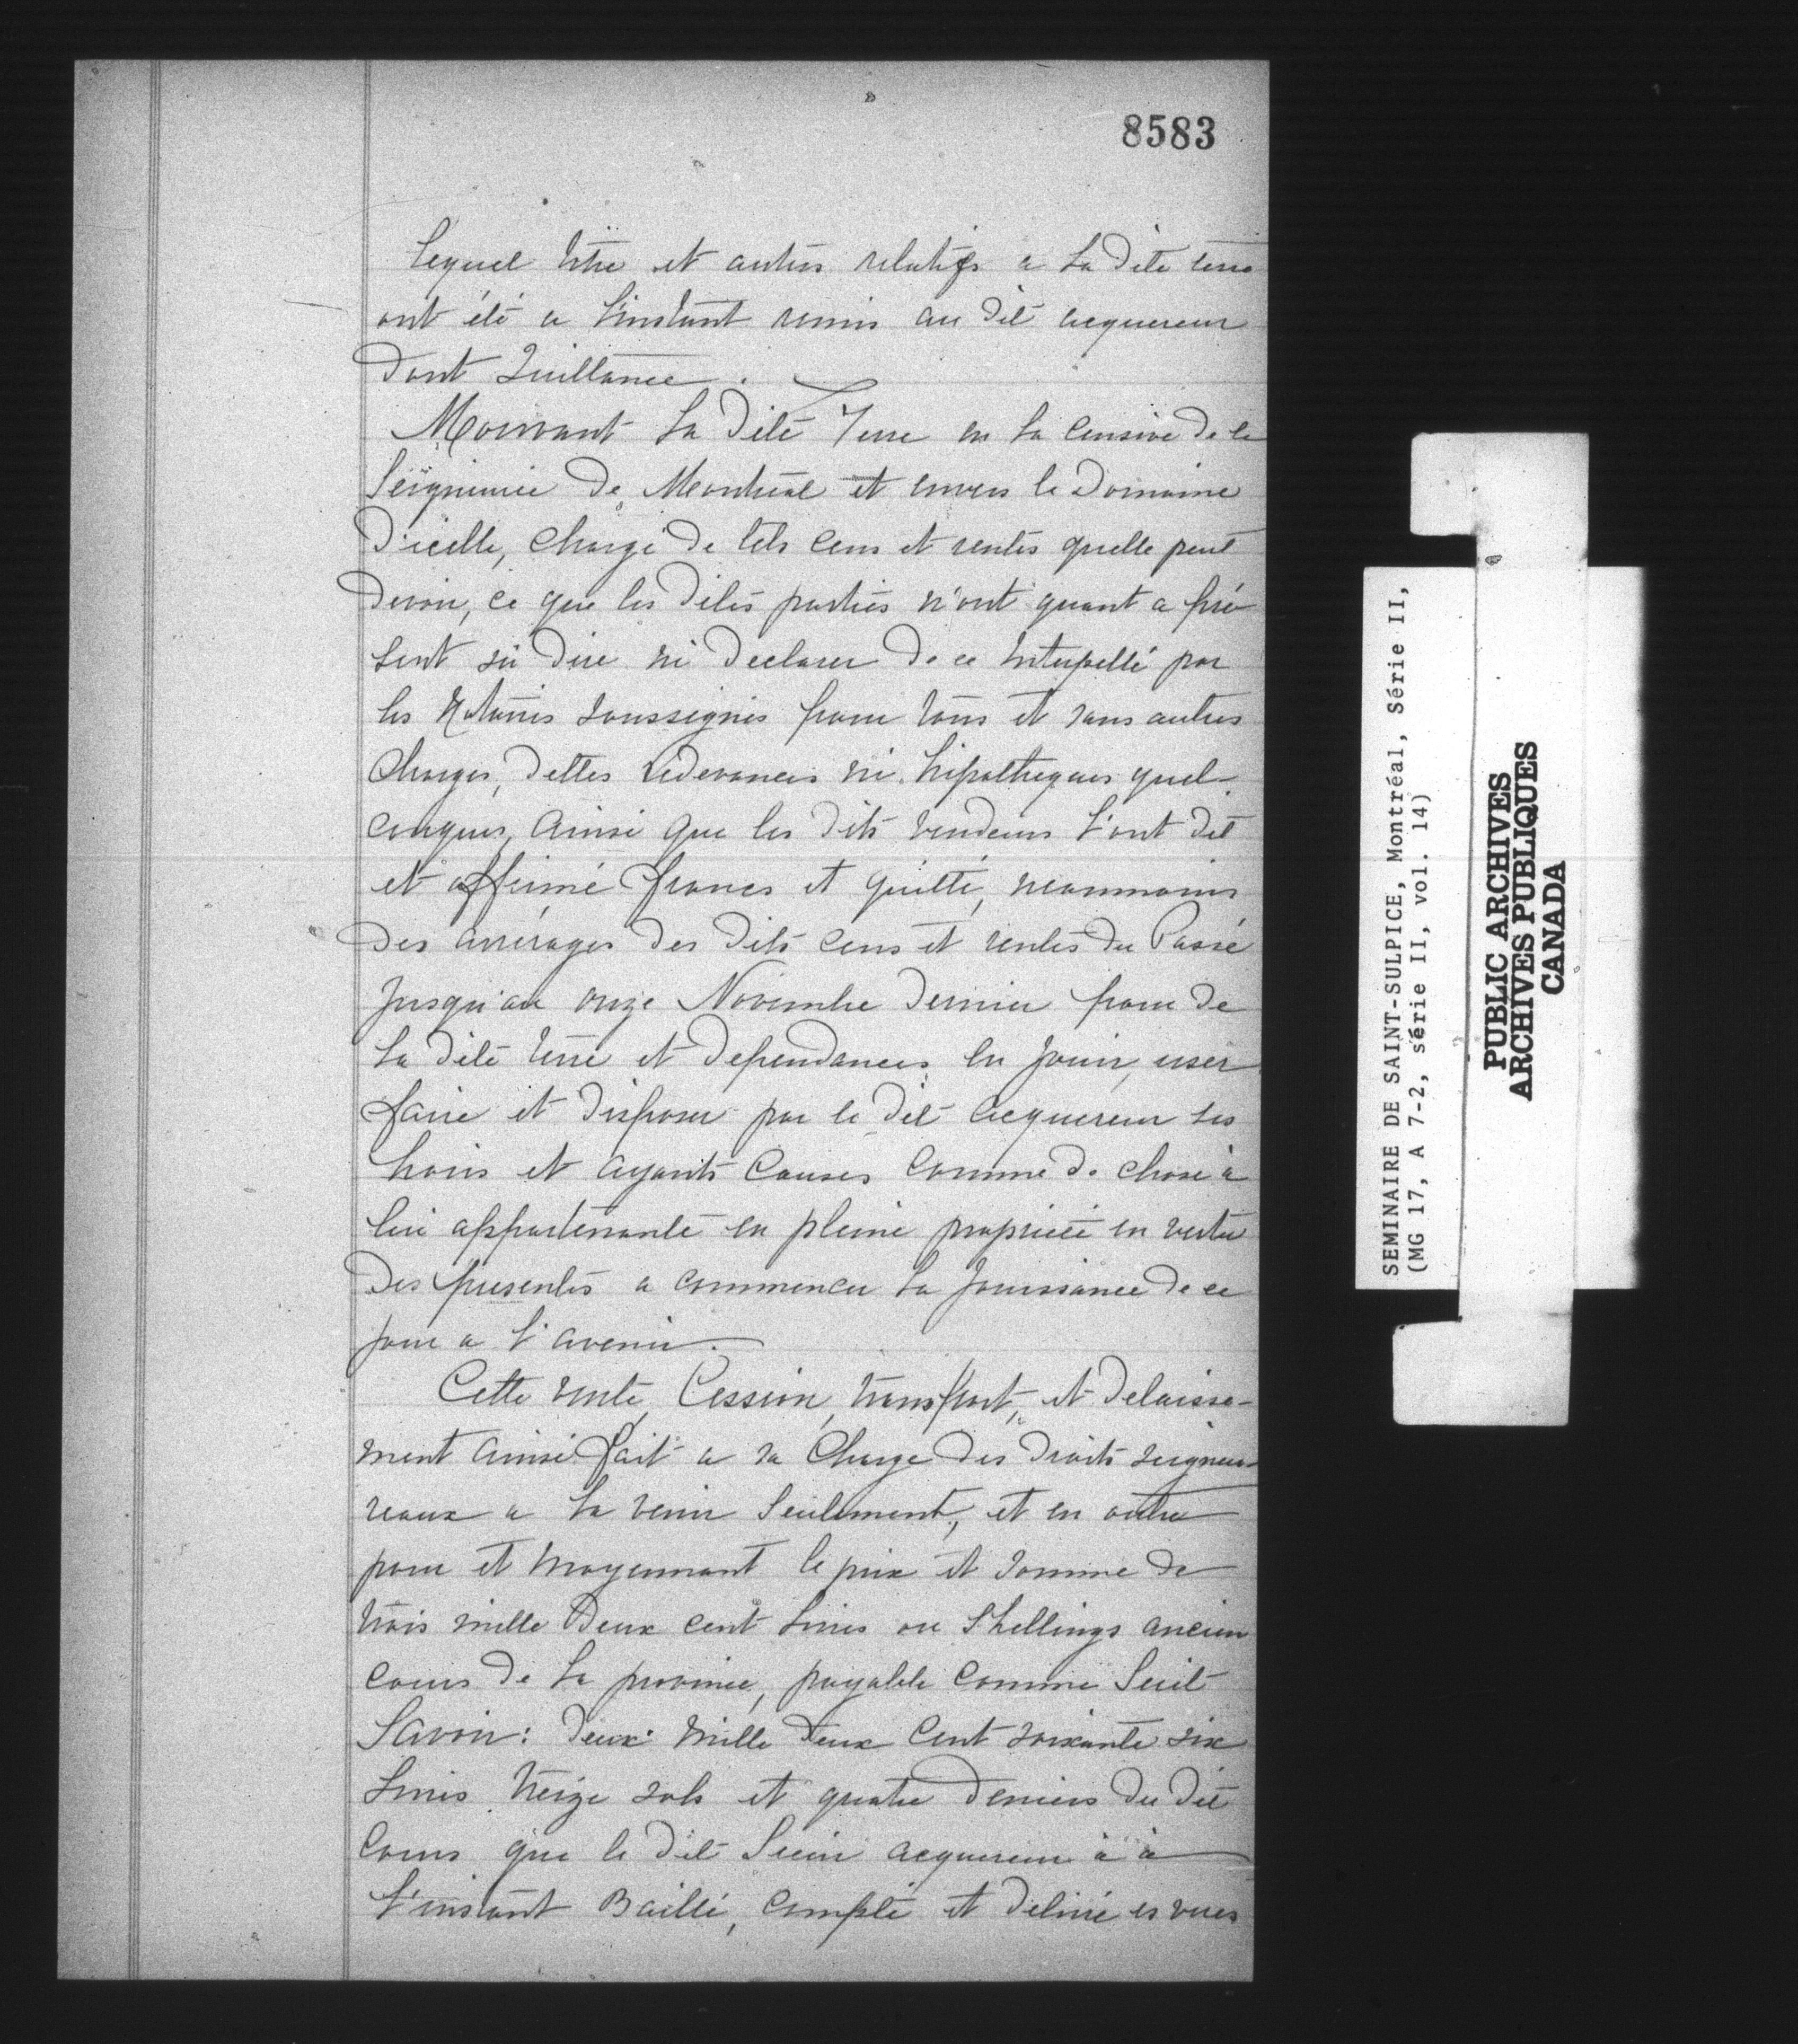 8583
Lequel titre et autres relatifs a la dite terre
ont été a l'instant remis au dit acquereur
dont Quittance.
Mouvant la dite Terre en la censive de la
Seigneurie de Montréal et envers le Domaine
d'icelle, chargé de tels cens et rentes quelle peut
devoir, ce que les dites parties n'ont quant a pré
sent sû dire ni declarer de ce interpellé par
les Notaires soussignés pour tous et sans autres
charges, dettes redevances ni hipotheques quel-
conques, ainsi que les dits vendeurs l'ont dit
et affirmé francs et quitte, neanmoins
des arrérages des dits cens et rentes du Passé
jusqu'au onze Novembre dernier pour de
la dite terre et dependances en jouir, user
faire et disposer par le dit acquereur ses
hoirs et ayants causes comme de chose à
lui appartenante en pleine proprieté en vertu
des presentes a commencer la jouissance de ce
jour a l'avenir.
Cette vente, Cession, transport, et delaisse-
ment ainsi fait a la charge des droits seigneu-
reaux a la venir seulement, et en outre
pour et moyennant le prix et somme de
trois mille deux cent livres ou Shellings ancien
cours de la province, payable comme suit
Savoir: deux mille deux cent soixante six
livres treize sols et quatre deniers du dit
cours que le dit Sieur acquereur à à
l'instant Baillé, compté et delivré es vues
SEMINAIRE DE SAINT-SULPICE, Montréal, Série II,
(MG 17, A 7-2, série II, vol. 14)
PUBLIC ARCHIVES
ARCHIVES PUBLIQUES
CANADA